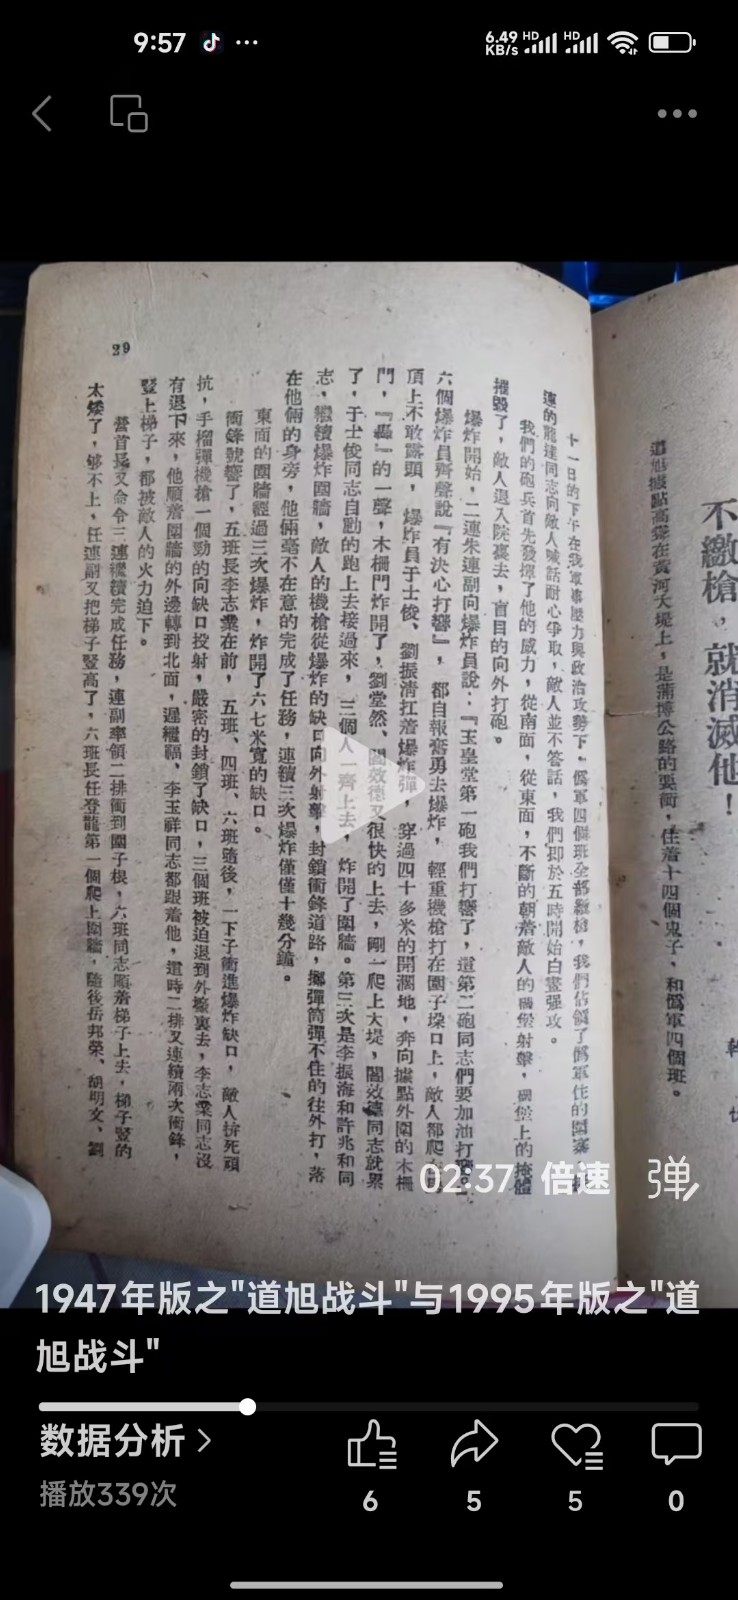 9:57
6.49 KB/s HD HD
不繳槍，就消滅他！
道旭據點高聳在黃河大堤上，是蒲博公路的要衝，住着十四個鬼子、和僞軍四個班。
十一日的下午在我軍事壓力與政治攻勢下，僞軍四個班全部繳槍，我們佔領了僞軍住的圍寨
連的龍達同志向敵人喊話耐心爭取，敵人並不答話，我們即於五時開始白晝强攻。
我們的砲兵首先發揮了他的威力，從南面，從東面，不斷的朝着敵人的碉堡射擊，碉堡上的掩體
摧毀了，敵人退入院裏去，盲目的向外打砲。
爆炸開始，二連朱連副向爆炸員說：『玉皇堂第一砲我們打響了，這第二砲同志們要加油打響』
六個爆炸員齊聲說『有決心打響』，都自報奮勇去爆炸，輕重機槍打在圍子垜口上，敵人都爬在
頂上不敢露頭，爆炸員于士俊、劉振淸扛着爆炸彈，穿過四十多米的開濶地，奔向據點外圍的木柵
門，『轟』的一聲，木柵門炸開了，劉堂然、閻效德又很快的上去，剛一爬上大堤，閻效德同志就累
了，于士俊同志自動的跑上去接過來，三個人一齊上去，炸開了圍牆。第三次是李振海和許兆和同
志，繼續爆炸圍牆，敵人的機槍從爆炸的缺口向外射擊，封鎖衝鋒道路，擲彈筒彈不住的往外打，落
在他倆的身旁，他倆毫不在意的完成了任務，連續三次爆炸僅僅十幾分鐘。
東面的圍牆經過三次爆炸，炸開了六七米寬的缺口。
衝鋒號響了，五班長李志業在前，五班、四班、六班隨後，一下子衝進爆炸缺口，敵人拚死頑
抗，手榴彈機槍一個勁的向缺口投射，嚴密的封鎖了缺口，三個班被迫退到外壕裏去，李志業同志沒
有退下來，他順着圍牆的外邊轉到北面，遲繼福、李玉祥同志都跟着他，這時二排又連續兩次衝鋒，
豎上梯子，都被敵人的火力迫下。
營首長又命令三連繼續完成任務，連副率領二排衝到圍子根，六班同志順着梯子上去，梯子豎的
太矮了，够不上，任連副又把梯子豎高了，六班長任登龍第一個爬上圍牆，隨後岳邦榮、胡明文、劉
29
02:37 倍速 弹
1947年版之"道旭战斗"与1995年版之"道
旭战斗"
数据分析
播放339次
6 5 5 0